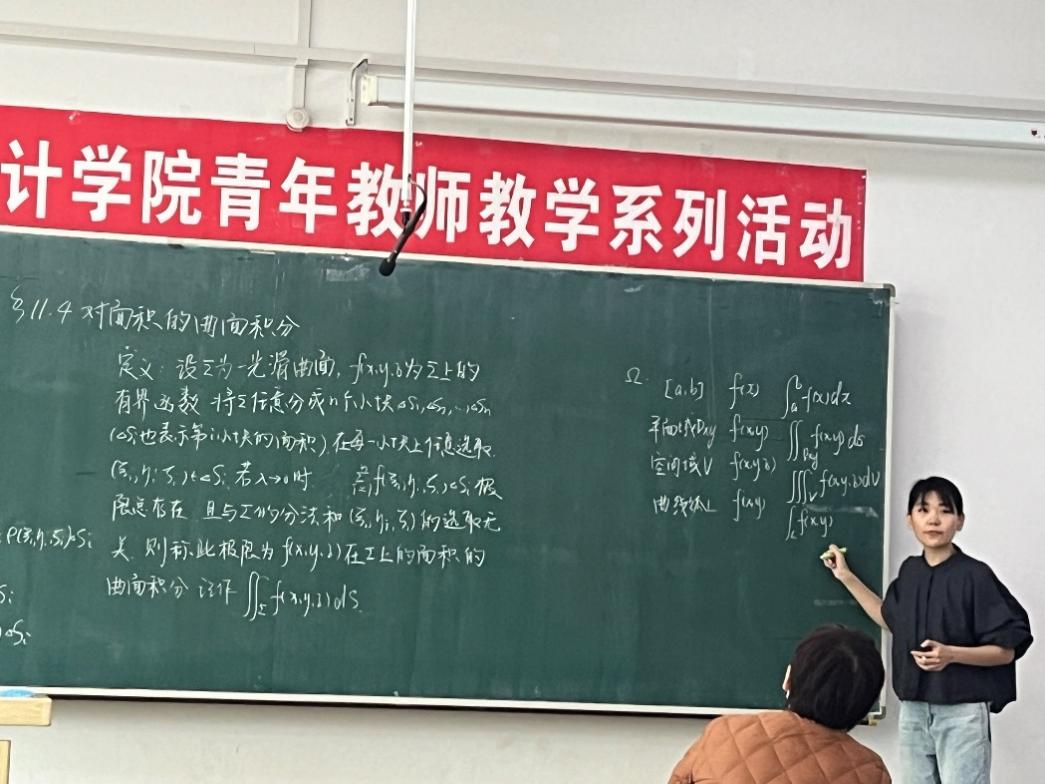 计学院青年教师教学系列活动
§11.4 对面积的曲面积分
定义：设Σ为一光滑曲面，f(x,y,z)为Σ上的
有界函数 将Σ任意分成n个小块ΔS₁,ΔS₂,…,ΔSₙ
(ΔSᵢ也表示第i小块的面积),在每一小块上任意选取
(ξᵢ,ηᵢ,ζᵢ)∈ΔSᵢ 若λ→0时 Σᵢ₌₁ⁿf(ξᵢ,ηᵢ,ζᵢ)ΔSᵢ极
限总存在 且与Σ的分法和(ξᵢ,ηᵢ,ζᵢ)的选取无
关 则称此极限为f(x,y,z)在Σ上的面积的
曲面积分 记作 ∬_Σ f(x,y,z)dS
Ω. [a,b] f(x) ∫ₐᵇ f(x)dx
平面域Dxy f(x,y) ∬_Dxy f(x,y)ds
空间域V f(x,y,z) ∭_V f(x,y,z)dV
曲线 L f(x,y) ∫_L f(x,y)
ΔSᵢ